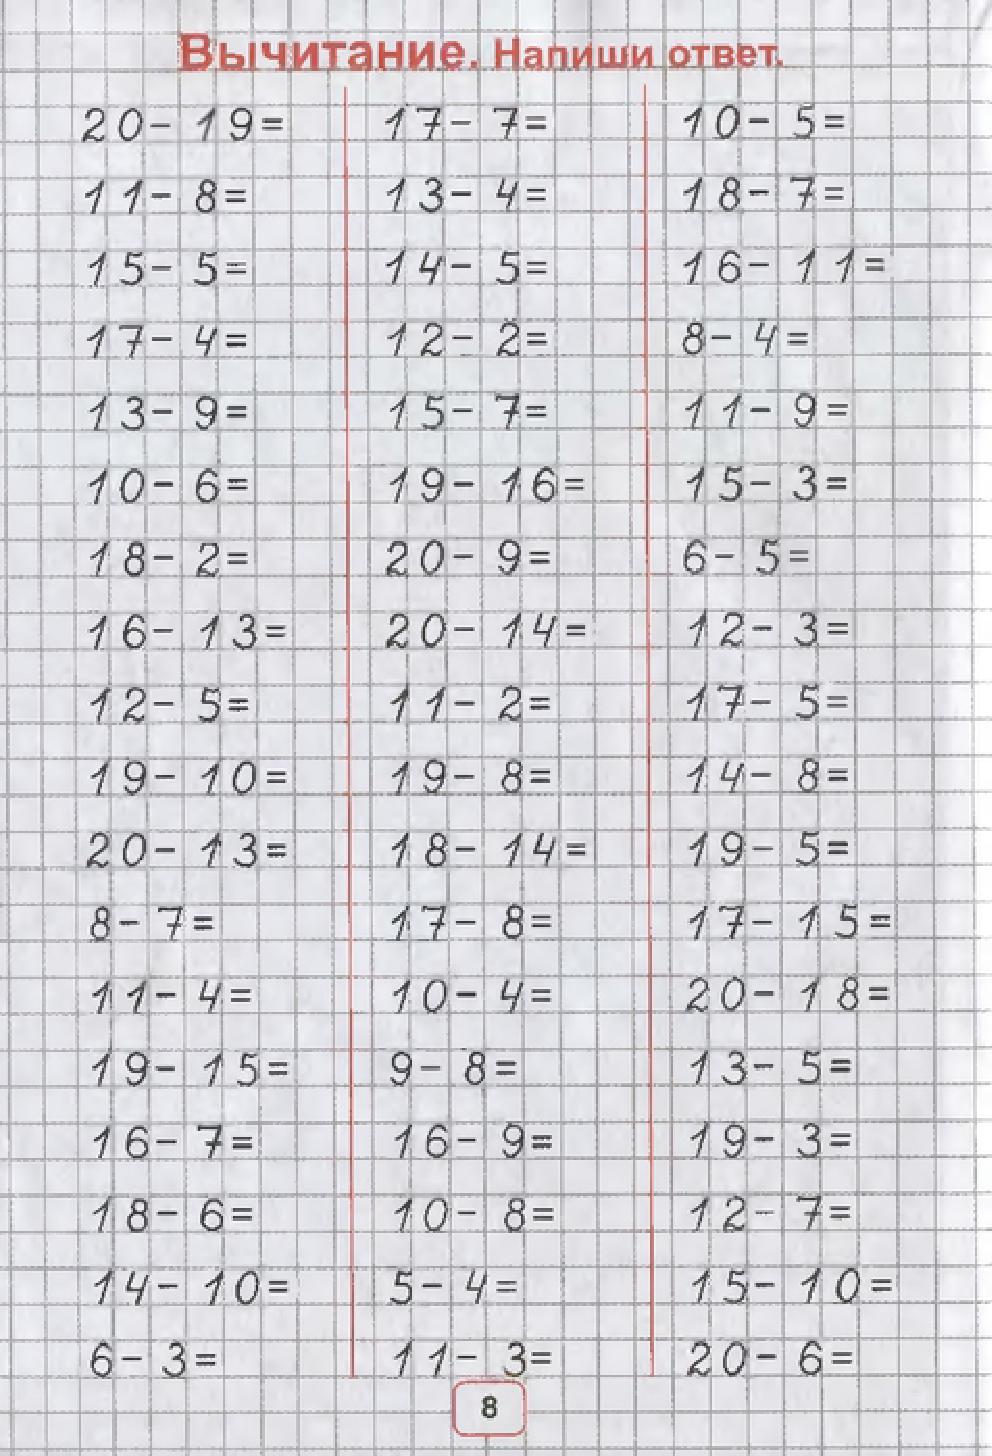 Вычитание. Напиши ответ.
20- 19=
11- 8=
15- 5=
17- 4=
13- 9=
10- 6=
18- 2=
16- 13=
12- 5=
19- 10=
20- 13=
8- 7=
11- 4=
19- 15=
16- 7=
18- 6=
14- 10=
6- 3=
17- 7=
13- 4=
14- 5=
12- 2=
15- 7=
19- 16=
20- 9=
20- 14=
11- 2=
19- 8=
18- 14=
17- 8=
10- 4=
9- 8=
16- 9=
10- 8=
5- 4=
11- 3=
10- 5=
18- 7=
16- 11=
8- 4=
11- 9=
15- 3=
6- 5=
12- 3=
17- 5=
14- 8=
19- 5=
17- 15=
20- 18=
13- 5=
19- 3=
12- 7=
15- 10=
20- 6=
8